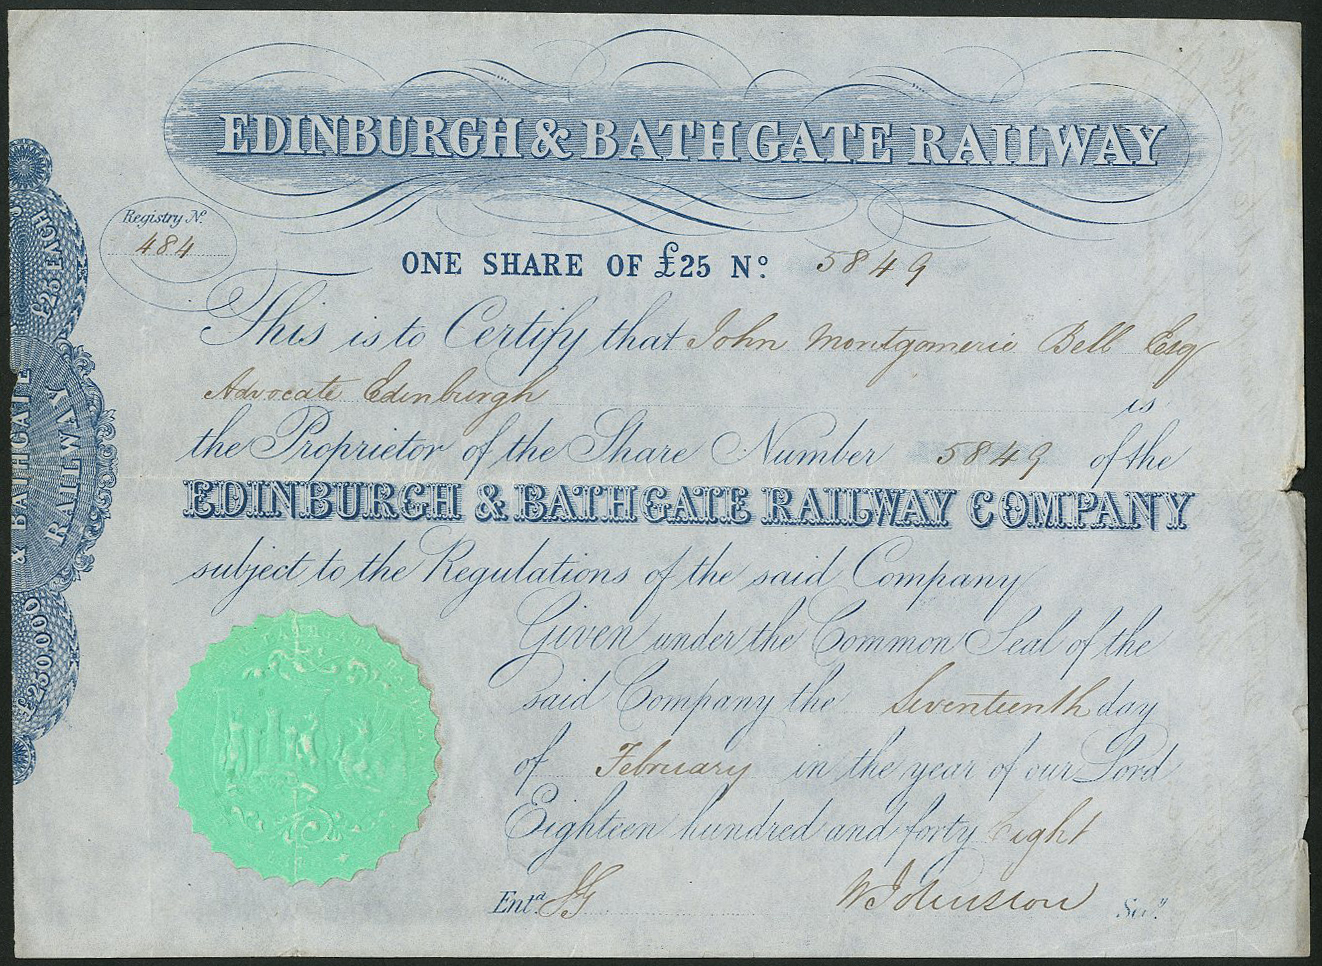 EDINBURGH & BATHGATE RAILWAY
Registry No.
484
ONE SHARE OF £25 No. 5849
This is to Certify that John Montgomerie Bell Esq
Advocate Edinburgh is
the Proprietor of the Share Number 5849 of the
EDINBURGH & BATHGATE RAILWAY COMPANY
subject to the Regulations of the said Company
Given under the Common Seal of the
said Company the Seventeenth day
of February in the year of our Lord
Eighteen hundred and forty Eight
Entd. W Johnston Secy.
£25 EACH
& BATHGATE
RAILWAY
£250,000